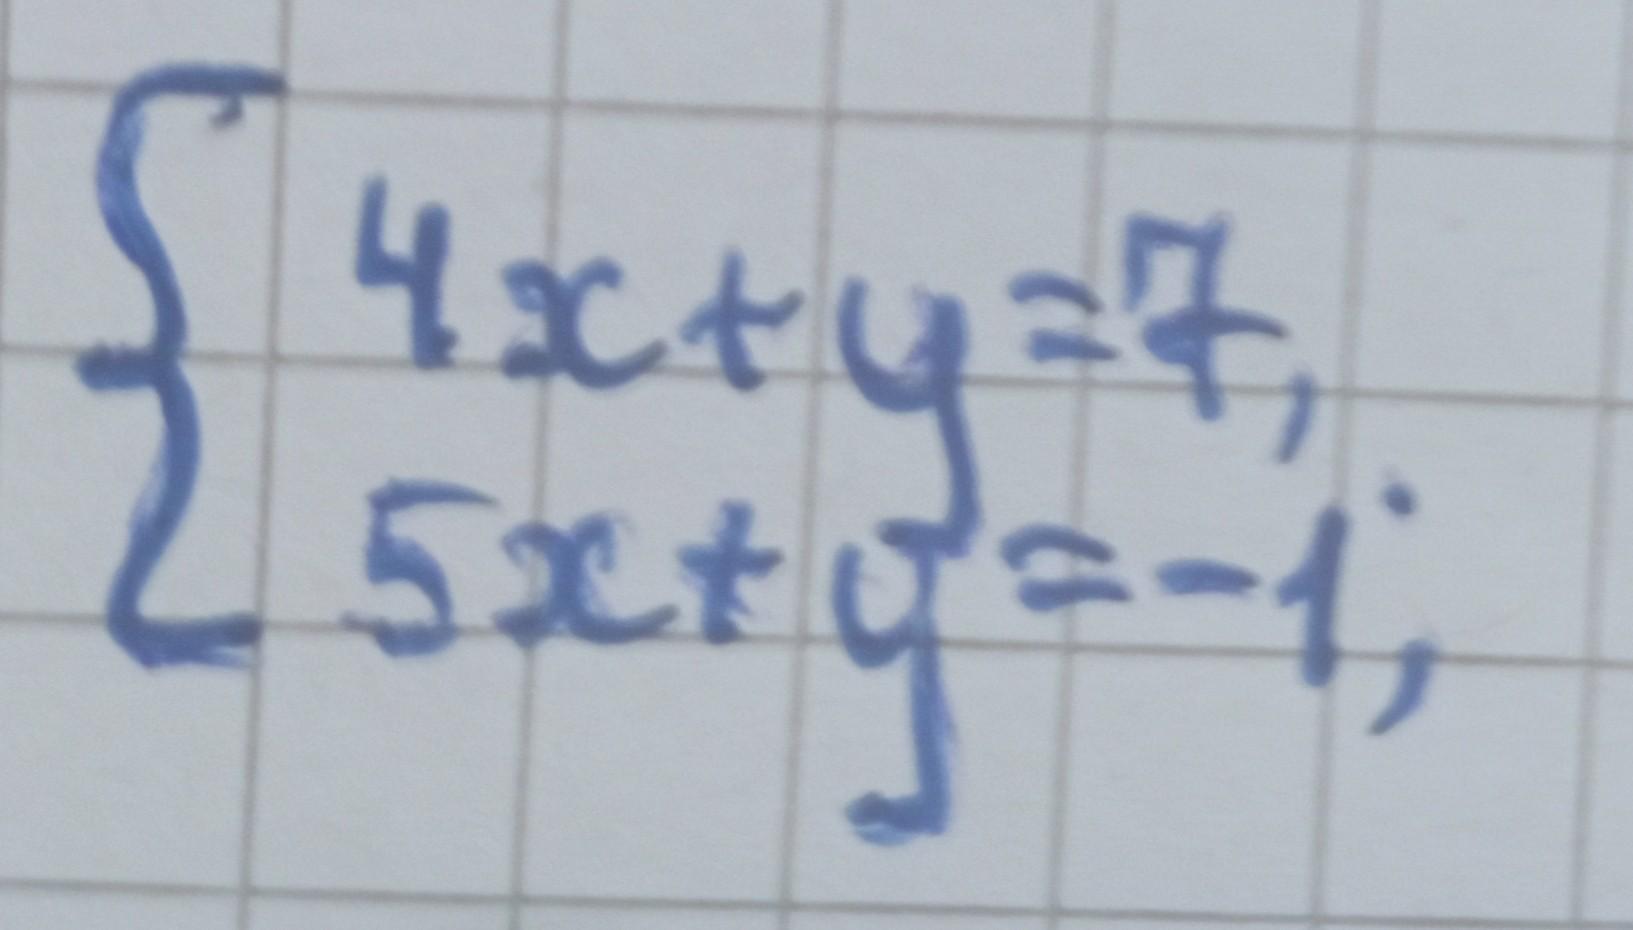 4x+y=7,
5x+y=-1;